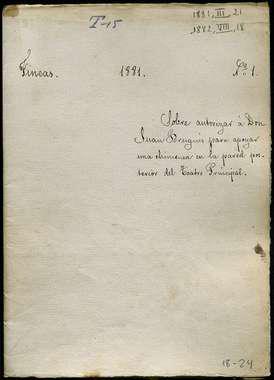 T-15
1881, III, 21
1882, VIII, 18
Fincas. 1881. Nº 1.
Sobre autorizar á Don
Juan para apoyar
una chimenea en la pared pos-
terior del Teatro Principal.
18-24